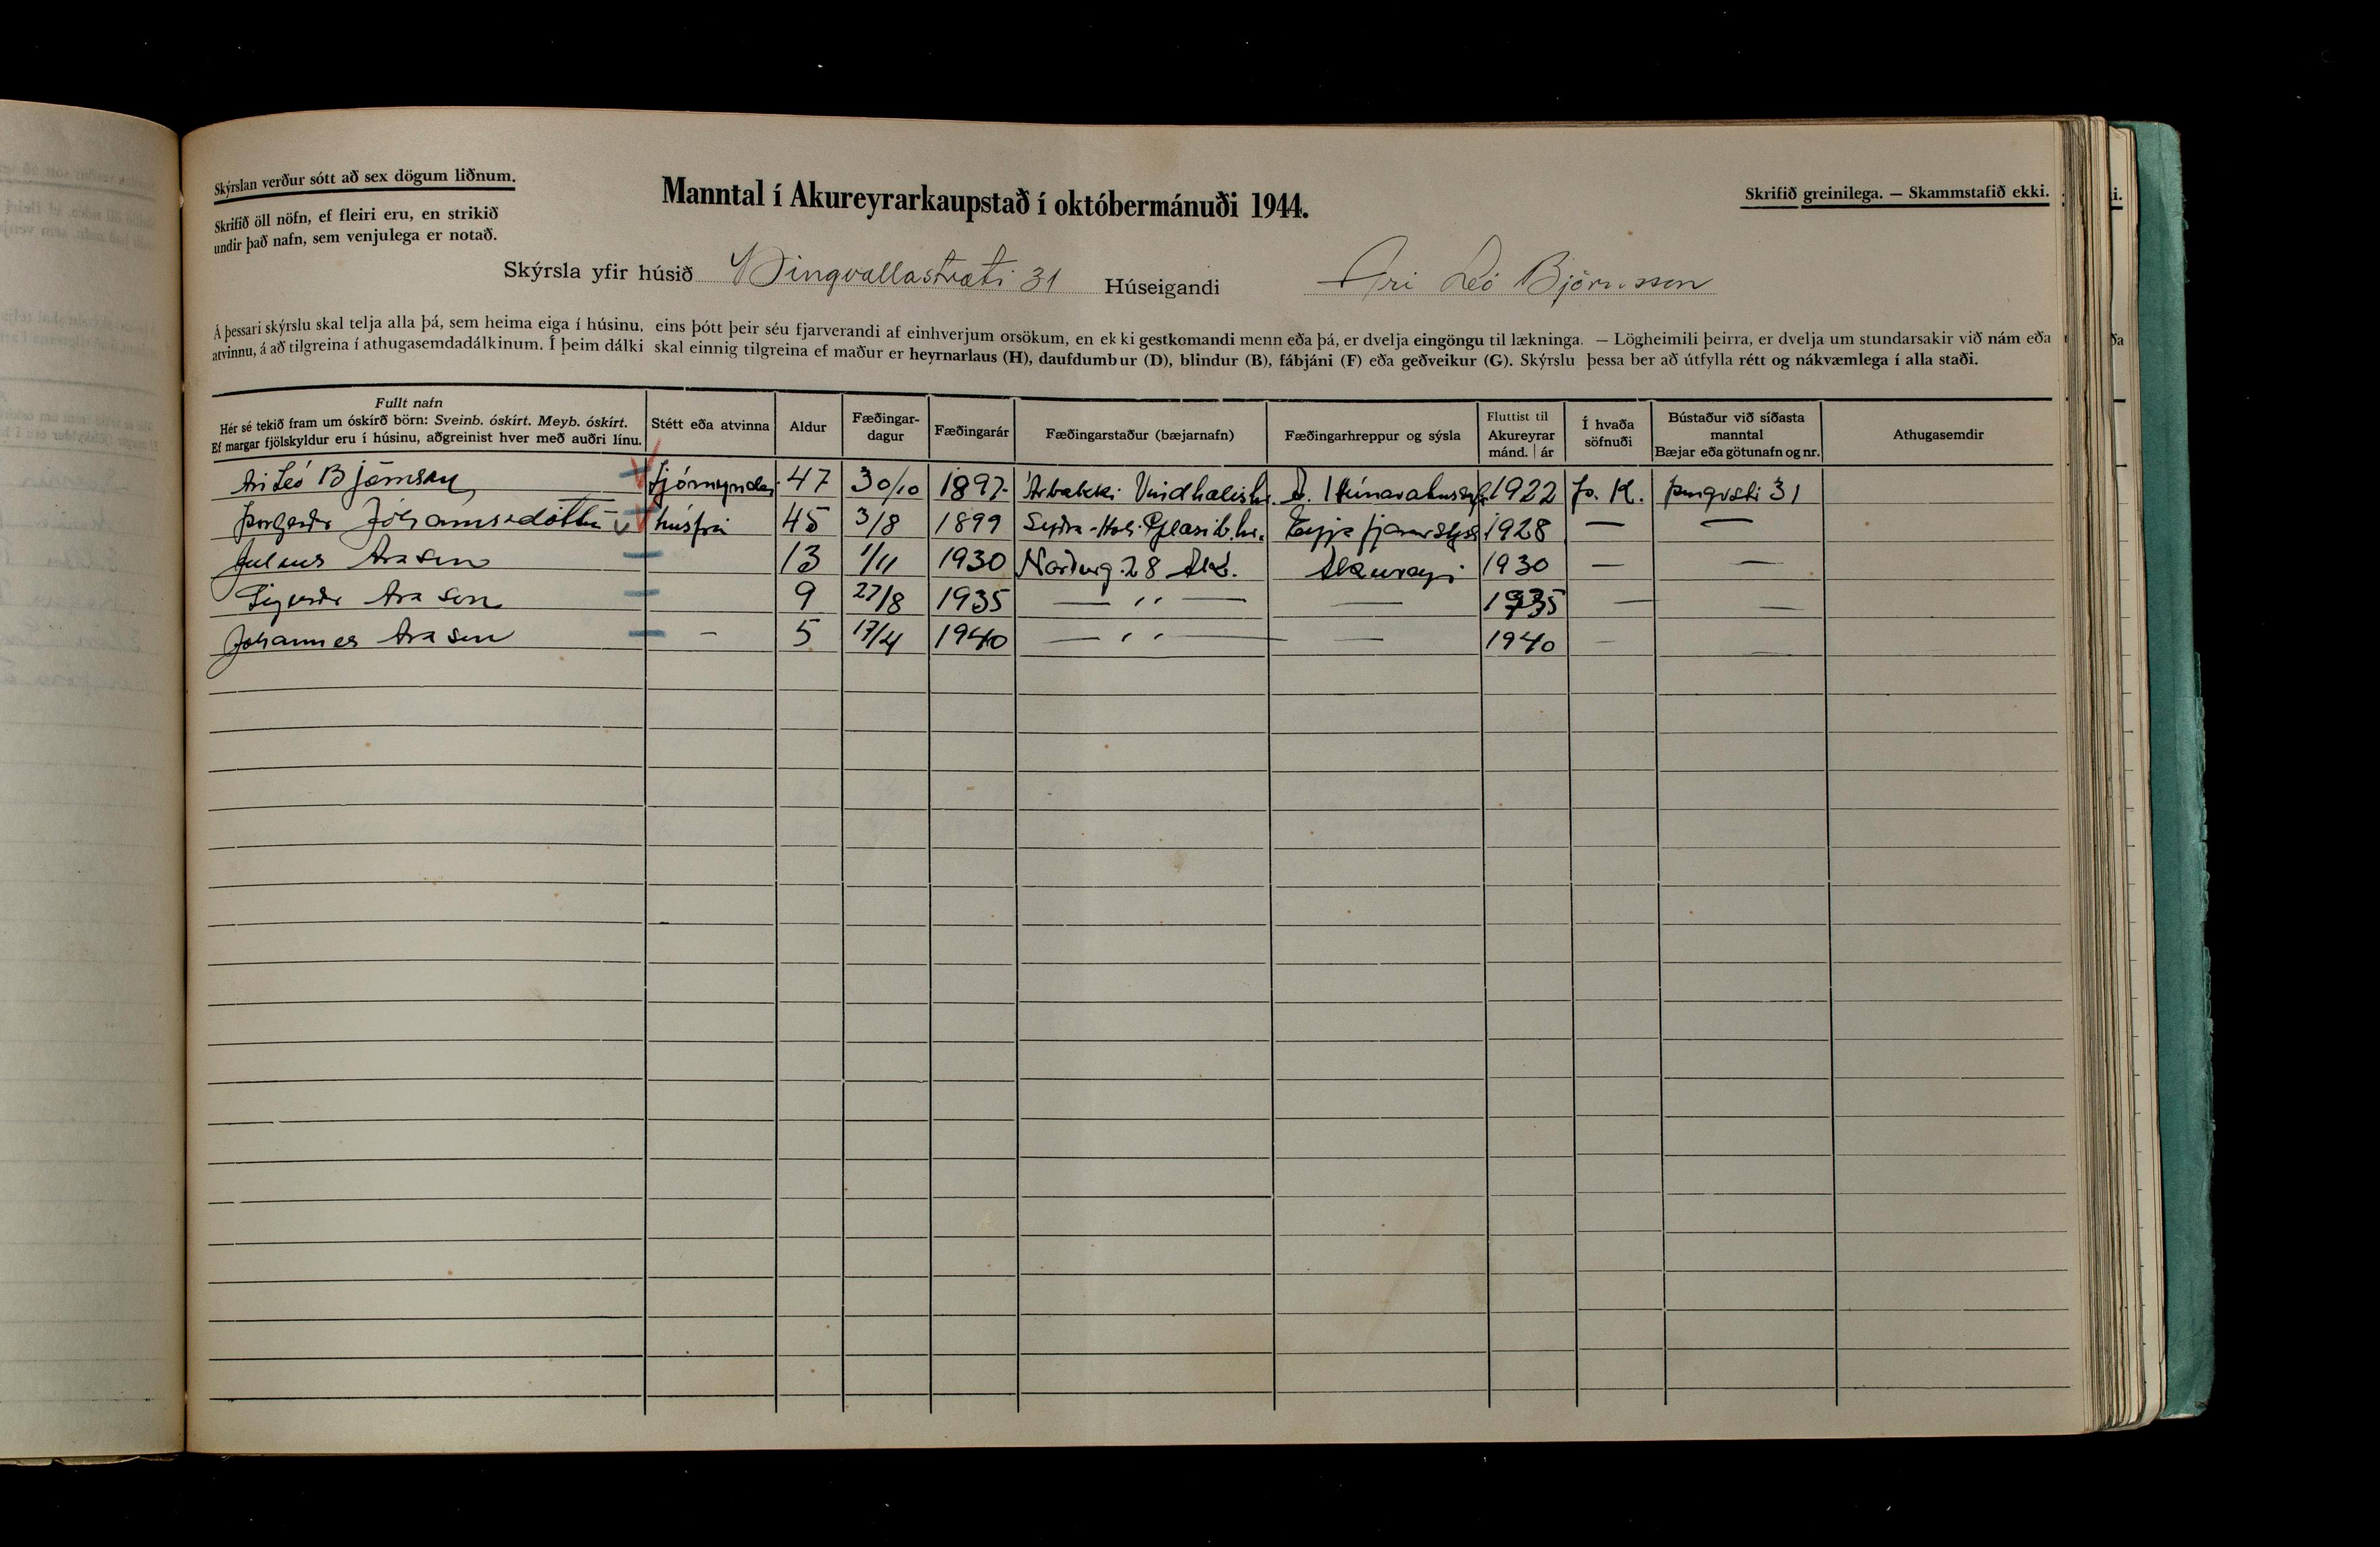 Skýrslan verður sótt að sex dögum liðnum.
Skrifið öll nöfn, ef fleiri eru, en strikið
undir það nafn, sem venjulega er notað.
Manntal í Akureyrarkaupstað í októbermánuði 1944.
Skrifið greinilega. — Skammstafið ekki.
Skýrsla yfir húsið Þingvallastræti 31 Húseigandi Ari Leó Björnsson
Á þessari skýrslu skal telja alla þá, sem heima eiga í húsinu, eins þótt þeir séu fjarverandi af einhverjum orsökum, en ekki gestkomandi menn eða þá, er dvelja eingöngu til lækninga. — Lögheimili þeirra, er dvelja um stundarsakir við nám eða
atvinnu, á að tilgreina í athugasemdadálkinum. Í þeim dálki skal einnig tilgreina ef maður er heyrnarlaus (H), daufdumbur (D), blindur (B), fábjáni (F) eða geðveikur (G). Skýrslu þessa ber að útfylla rétt og nákvæmlega í alla staði.
Fullt nafn
Hér sé tekið fram um óskírð börn: Sveinb. óskírt. Meyb. óskírt.
Ef margar fjölskyldur eru í húsinu, aðgreinist hver með auðri línu.
Stétt eða atvinna
Aldur
Fæðingar-
dagur
Fæðingarár
Fæðingarstaður (bæjarnafn)
Fæðingarhreppur og sýsla
Fluttist til
Akureyrar
mánd. | ár
Í hvaða
söfnuði
Bústaður við síðasta
manntal
Bæjar eða götunafn og nr.
Athugasemdir
Ari Leó Björnsson 47 30/10 1897 Árbakki Vindhælishr. A. Húnavatnss. 1922 Þ. K. Þingvstr 31
Þorgerður Jóhannsdóttir húsfrú 45 3/8 1899 Glæsib.hr. Eyjafjarðars. 1928 — —
Júlíus Arason 13 1/11 1930 Norðurg. 28 Ak. Akureyri 1930 — —
Sigurður Arason 9 27/8 1935 — ,, — — 1935 — —
Jóhannes Arason — 5 17/4 1940 — ,, — — 1940 — —